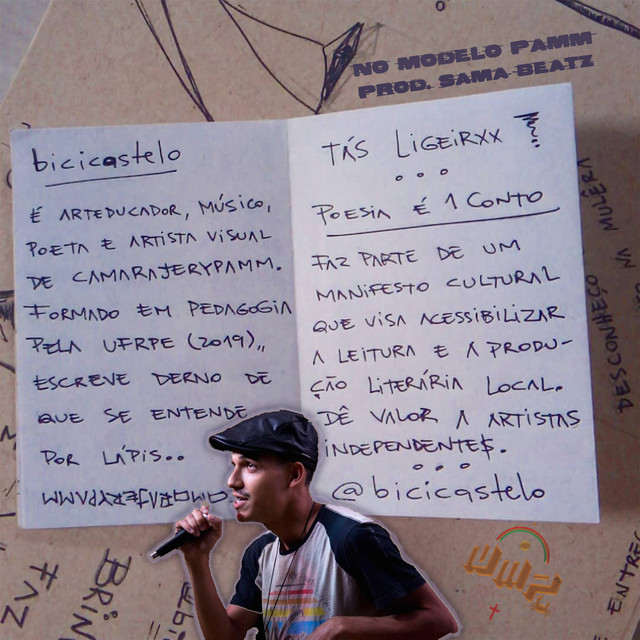 NO MODELO PAMM
PROD. SAMA BEATZ
bicicastelo
É ARTEDUCADOR, MÚSICO,
POETA E ARTISTA VISUAL
DE CAMARAJERYPAMM.
FORMADO EM PEDAGOGIA
PELA UFRPE (2019),,
ESCREVE DERNO DE
QUE SE ENTENDE
POR LÁPIS..
TÁS LIGEIRXX
...
POESIA É 1 CONTO
FAZ PARTE DE UM
MANIFESTO CULTURAL
QUE VISA ACESSIBILIZAR
A LEITURA E A PRODU-
ÇÃO LITERÁRIA LOCAL.
DÊ VALOR A ARTISTAS
INDEPENDENTE$.
...
@bicicastelo
DESCONHEÇO
FAZ